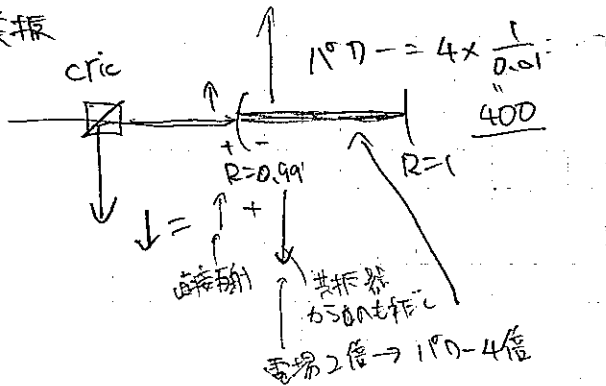 共振
cric
パワー = 4 × 1/0.01 =
400
+ -
R=0.99
R=1
↓ = ↑ + ↓
直接反射
共振器
からのもれ
電場2倍 → パワー4倍